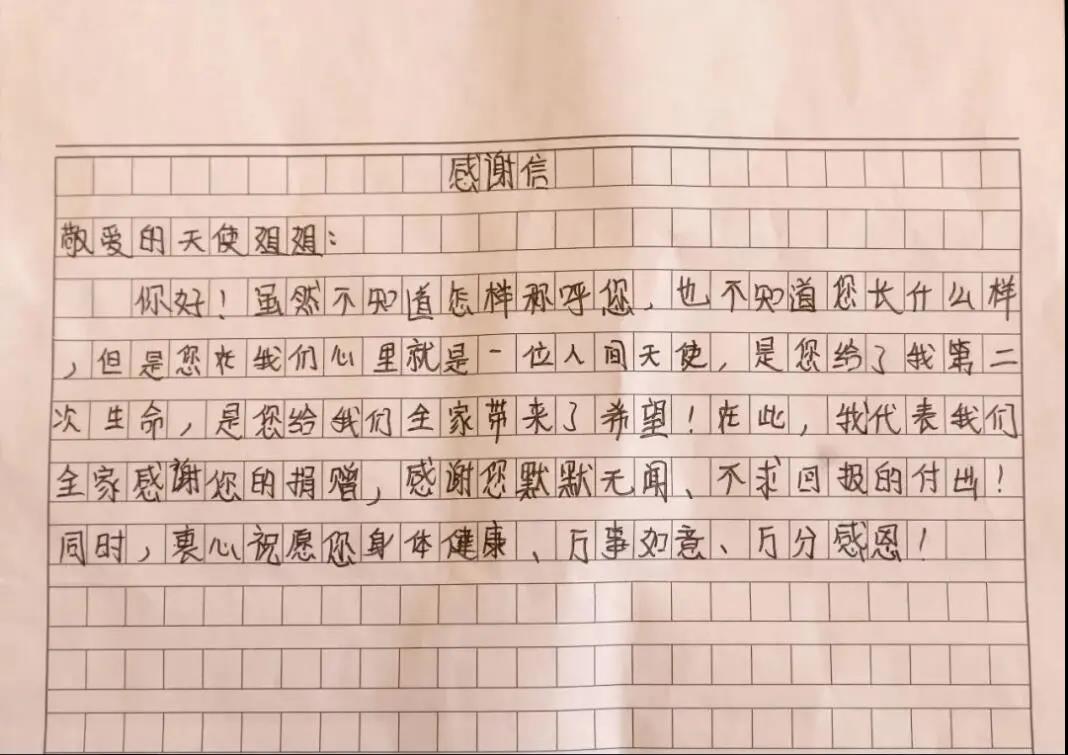 感谢信
敬爱的天使姐姐：
你好！虽然不知道怎样称呼您，也不知道您长什么样
，但是您在我们心里就是一位人间天使，是您给了我第二
次生命，是您给我们全家带来了希望！在此，我代表我们
全家感谢您的捐赠，感谢您默默无闻、不求回报的付出！
同时，衷心祝愿您身体健康、万事如意、万分感恩！